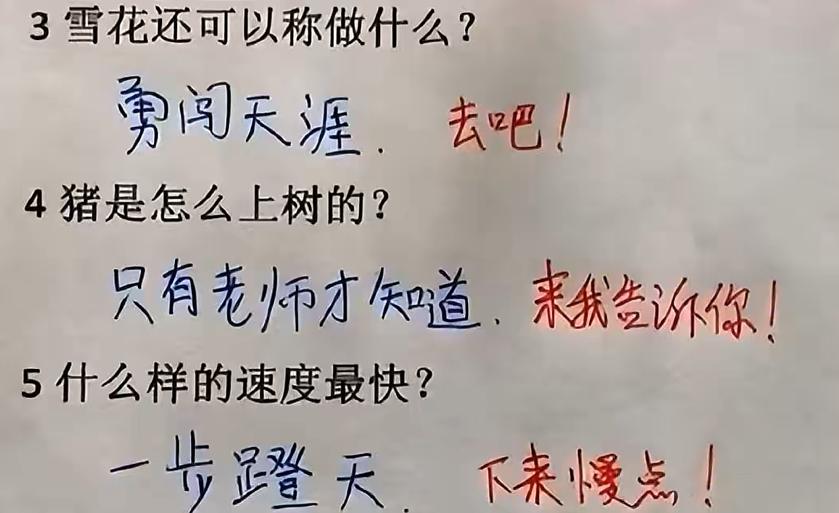 3 雪花还可以称做什么？
勇闯天涯. 去吧！
4 猪是怎么上树的？
只有老师才知道. 来我告诉你！
5 什么样的速度最快？
一步蹬天. 下来慢点！